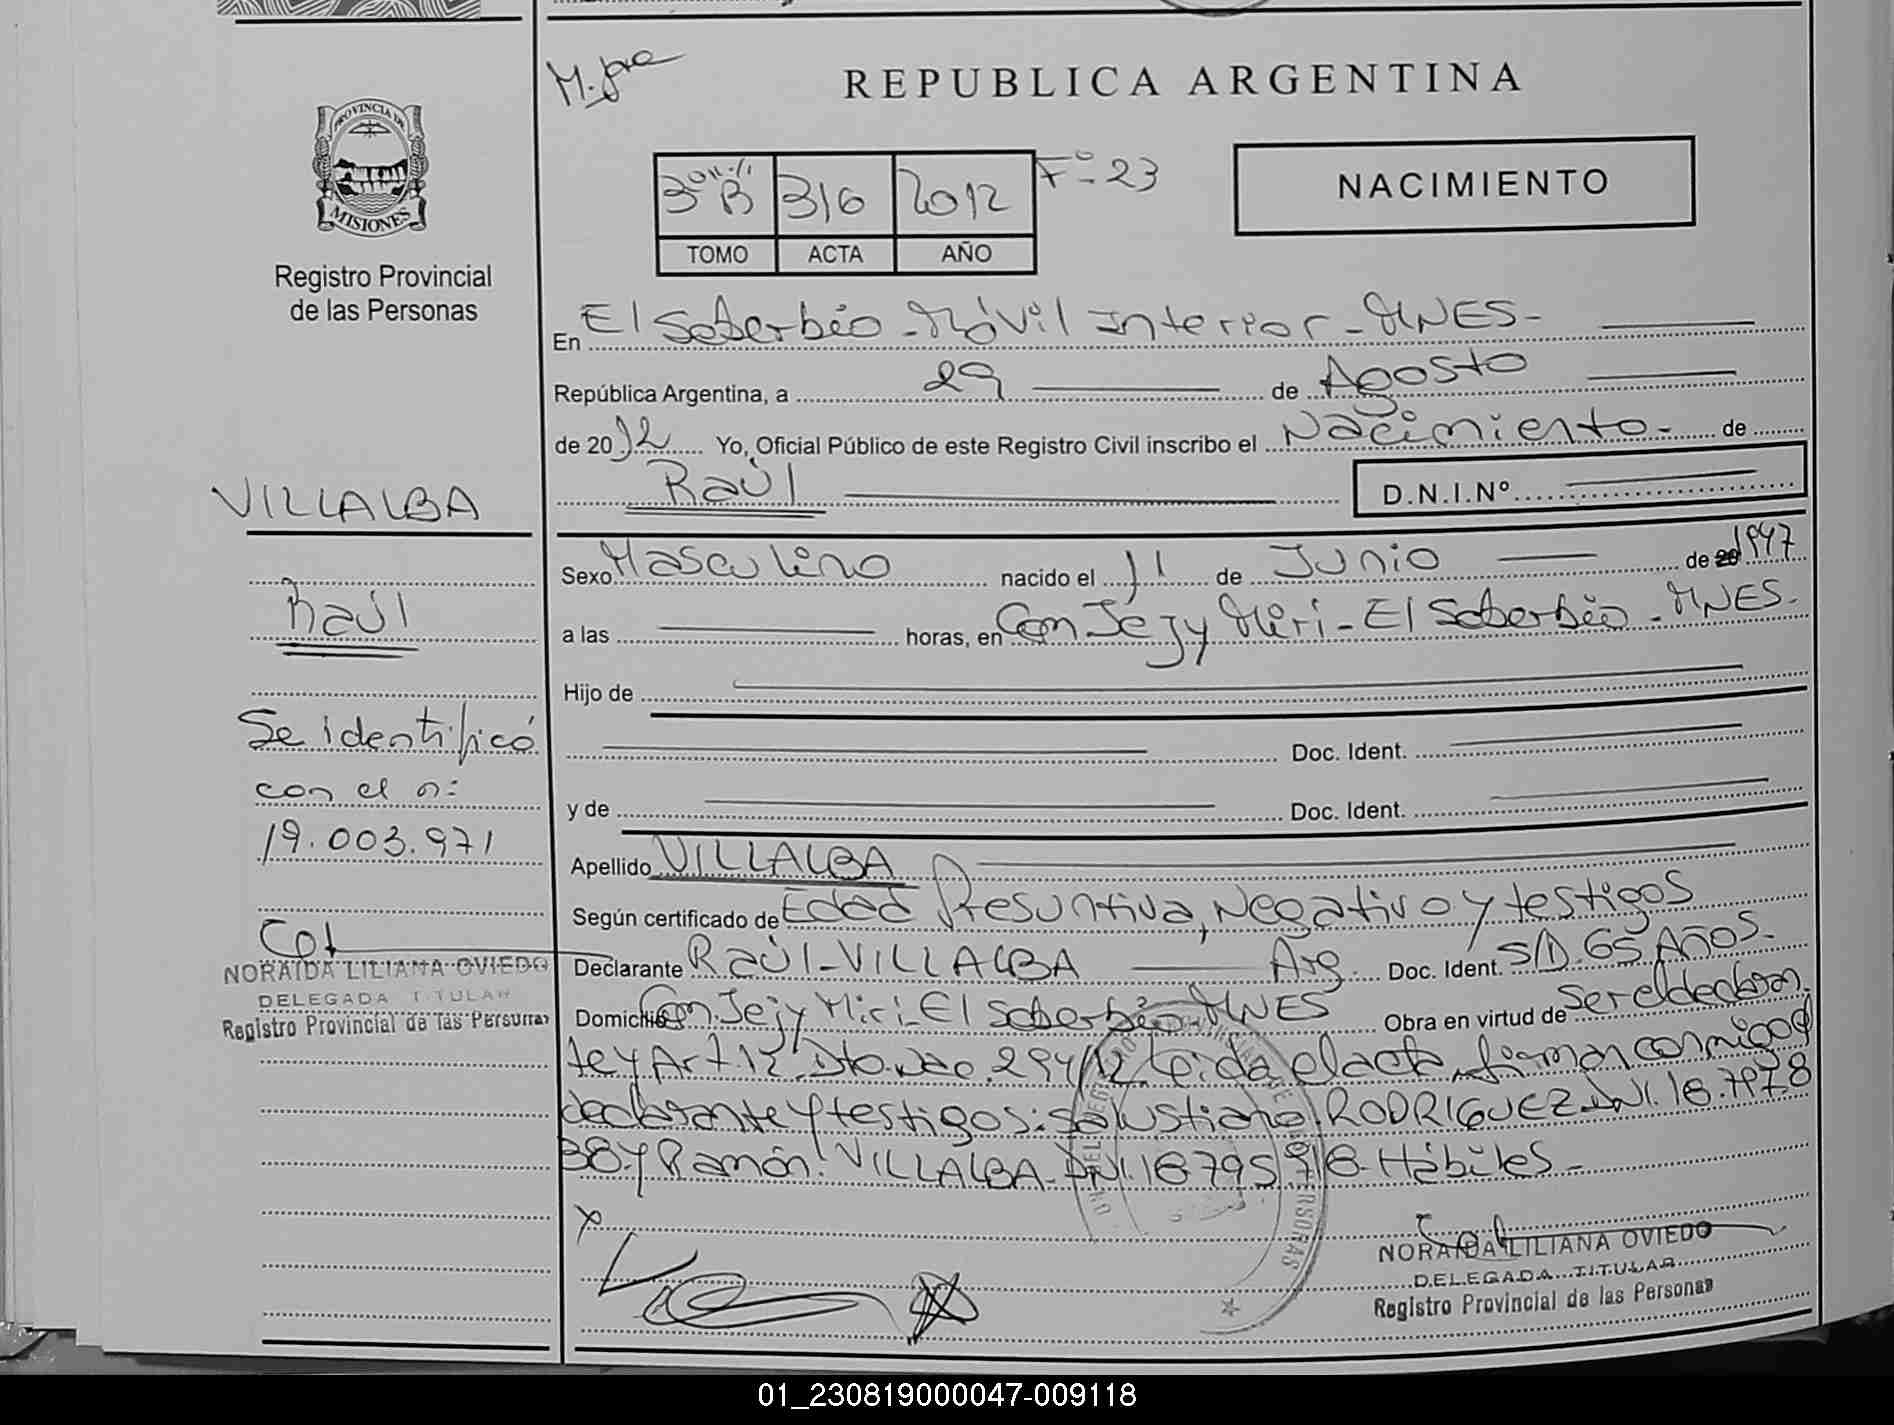 M. gra
REPUBLICA ARGENTINA
PROVINCIA DE
MISIONES
Registro Provincial
de las Personas
3º B 316 2012 Fº 23
TOMO ACTA AÑO
NACIMIENTO
En El Soberbio - Móvil Interior - MNES -
República Argentina, a 29 de Agosto
de 2012 Yo, Oficial Público de este Registro Civil inscribo el Nacimiento - de
Raúl D.N.I.Nº
VILLALBA
Raúl
Se identificó
con el nº
19.003.971
NORAIDA LILIANA OVIEDO
DELEGADA TITULAR
Registro Provincial de las Personas
Sexo Masculino nacido el 11 de Junio de 20 1947
a las horas, en Com Jejy Miri - El Soberbio - MNES -
Hijo de
Doc. Ident.
y de Doc. Ident.
Apellido VILLALBA
Según certificado de Edad Presuntiva, Negativo y testigos
Declarante Raúl - VILLALBA Arg. Doc. Ident. S/D. 65 AÑOS.
Domicilio Com Jejy Miri - El Soberbio MNES Obra en virtud de ser el declaran
te y Art. 12 Dto. Nac. 294/12. Leida el acta, firman conmigo el
declarante y testigos: Salustiano RODRIGUEZ DNI. 18.797.8
38 y Ramón VILLALBA - DNI. 18.795.918. Hábiles -
X
NORAIDA LILIANA OVIEDO
DELEGADA TITULAR
Registro Provincial de las Personas
01_230819000047-009118